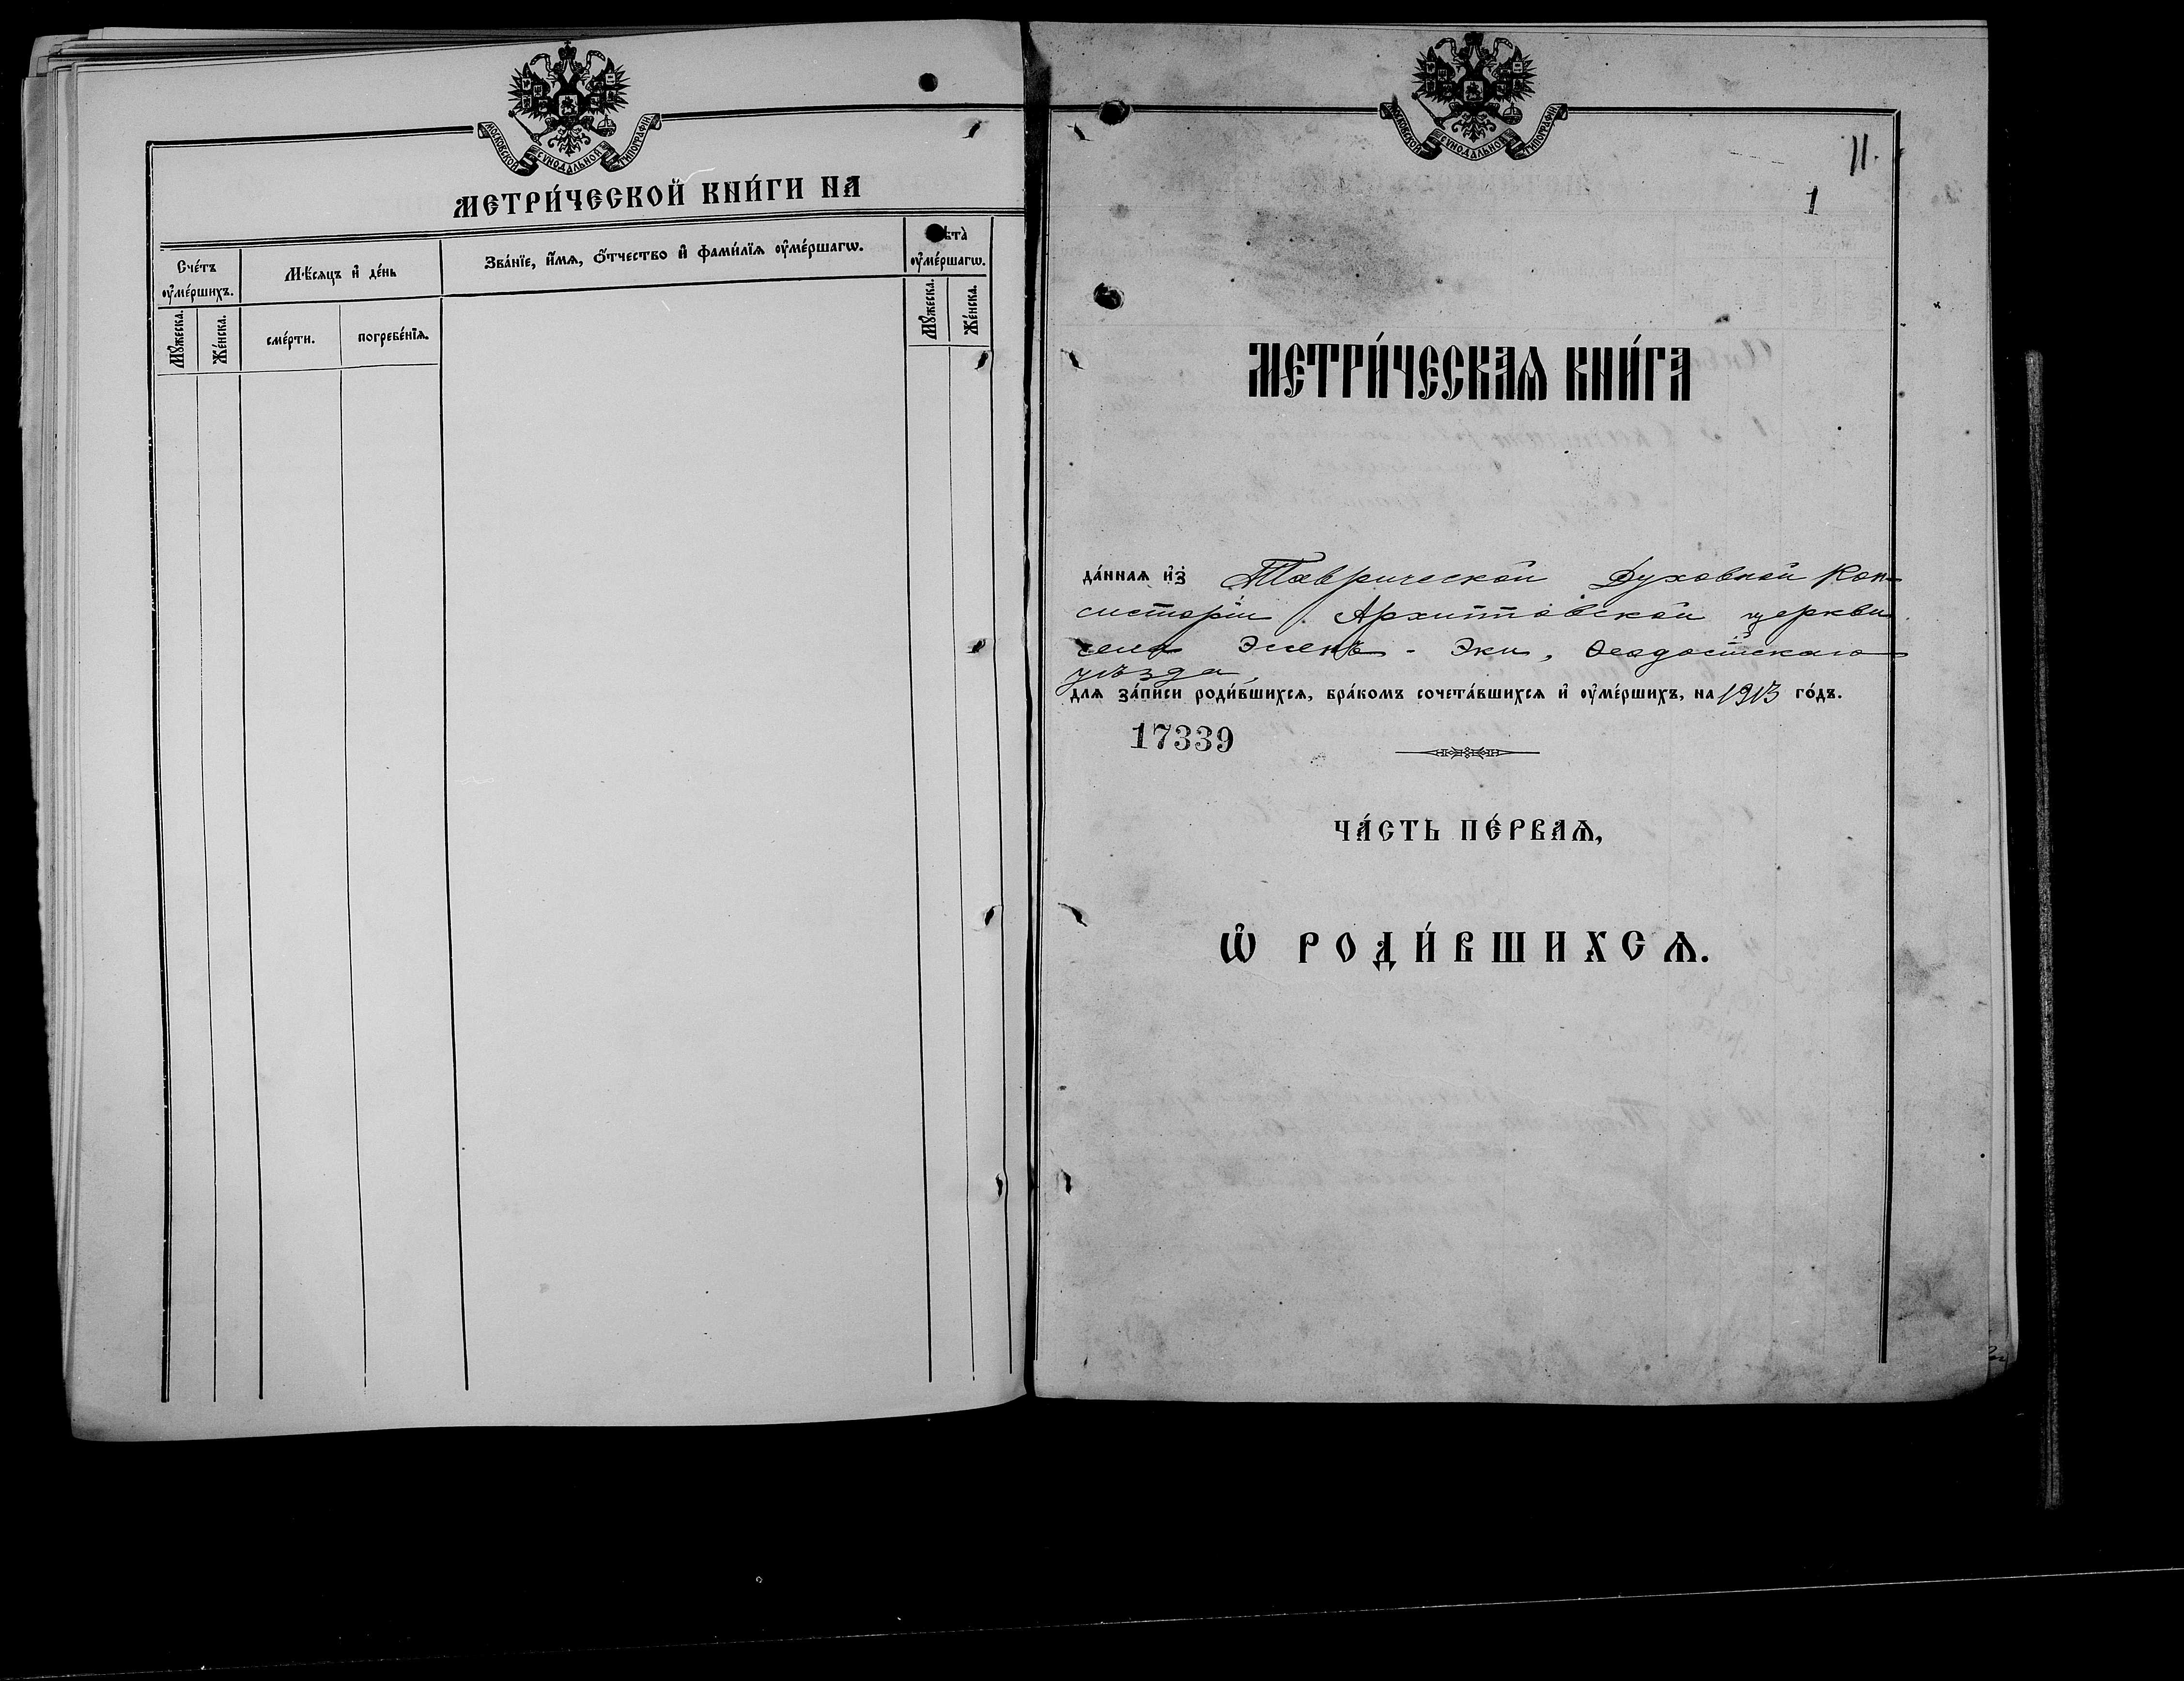 МОСКОВСКОЙ СѴНОДАЛЬНОЙ ТИПОГРАФІИ
МЕТРИ́ЧЕСКОЙ КНИ́ГИ НА
Сче́тъ ᲂу҆ме́ршихъ.
Мѣ́сяцъ и҆ де́нь
Зва́нїе, и҆́мѧ, ѻ҆́тчество и҆ фами́лїѧ ᲂу҆ме́ршагѡ.
ᲂу҆ме́ршагѡ.
Мꙋ́жеска.
Же́нска.
сме́рти.
погребе́нїѧ.
Мꙋ́жеска.
Же́нска.
МОСКОВСКОЙ СѴНОДАЛЬНОЙ ТИПОГРАФІИ
11.
1
МЕТРИ́ЧЕСКАѦ КНИ́ГА
да́ннаѧ и҆з̾ Таврической Духовной Кон-
систоріи Архиповской церкви
села Эсенъ-Эки, Ѳеодосійскаго
уѣзда
длѧ за́писи роди́вшихсѧ, бра́комъ сочета́вшихсѧ и҆ ᲂу҆ме́ршихъ, на 1913 го́дъ.
17339
ЧА́СТЬ ПЕ́РВАѦ,
Ѡ҆ РОДИ́ВШИХСѦ.